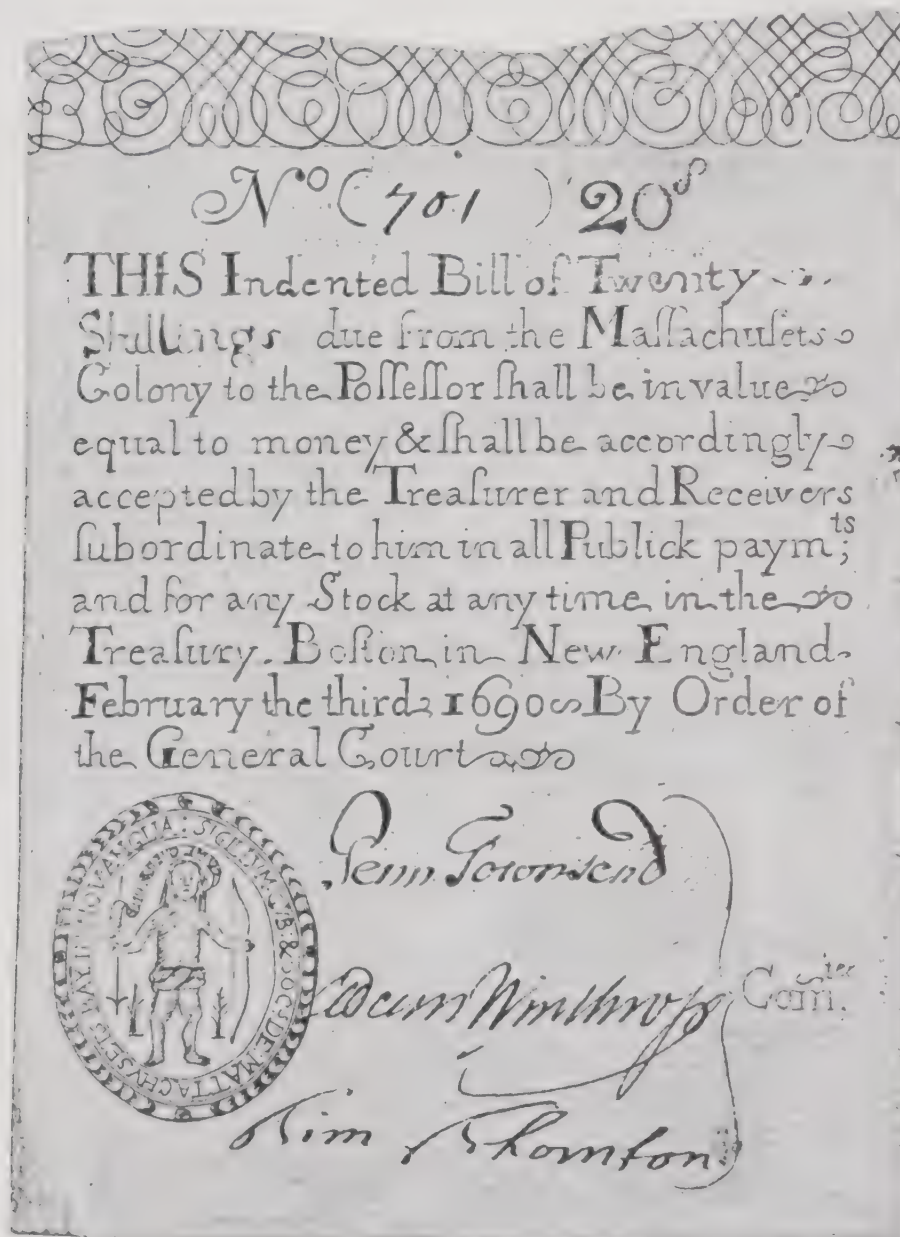 Nº (701) 20ˢ
THIS Indented Bill of Twenty
Shillings due from the Maſſachuſets
Colony to the Poſſeſſor ſhall be in value
equal to money & ſhall be accordingly
accepted by the Treaſurer and Receivers
ſubordinate to him in all Publick paymᵗˢ;
and for any Stock at any time in the
Treaſury. Boſton in New England
February the third 1690 By Order of
the General Court
SIGILLVM: GVB: & SOC: DE: MATTACHVSETS: BAY: IN: NOV: ANGLIA:
Penn Townsend
Adam Winthrop
Comᵗᵉᵉ
Tim Thornton